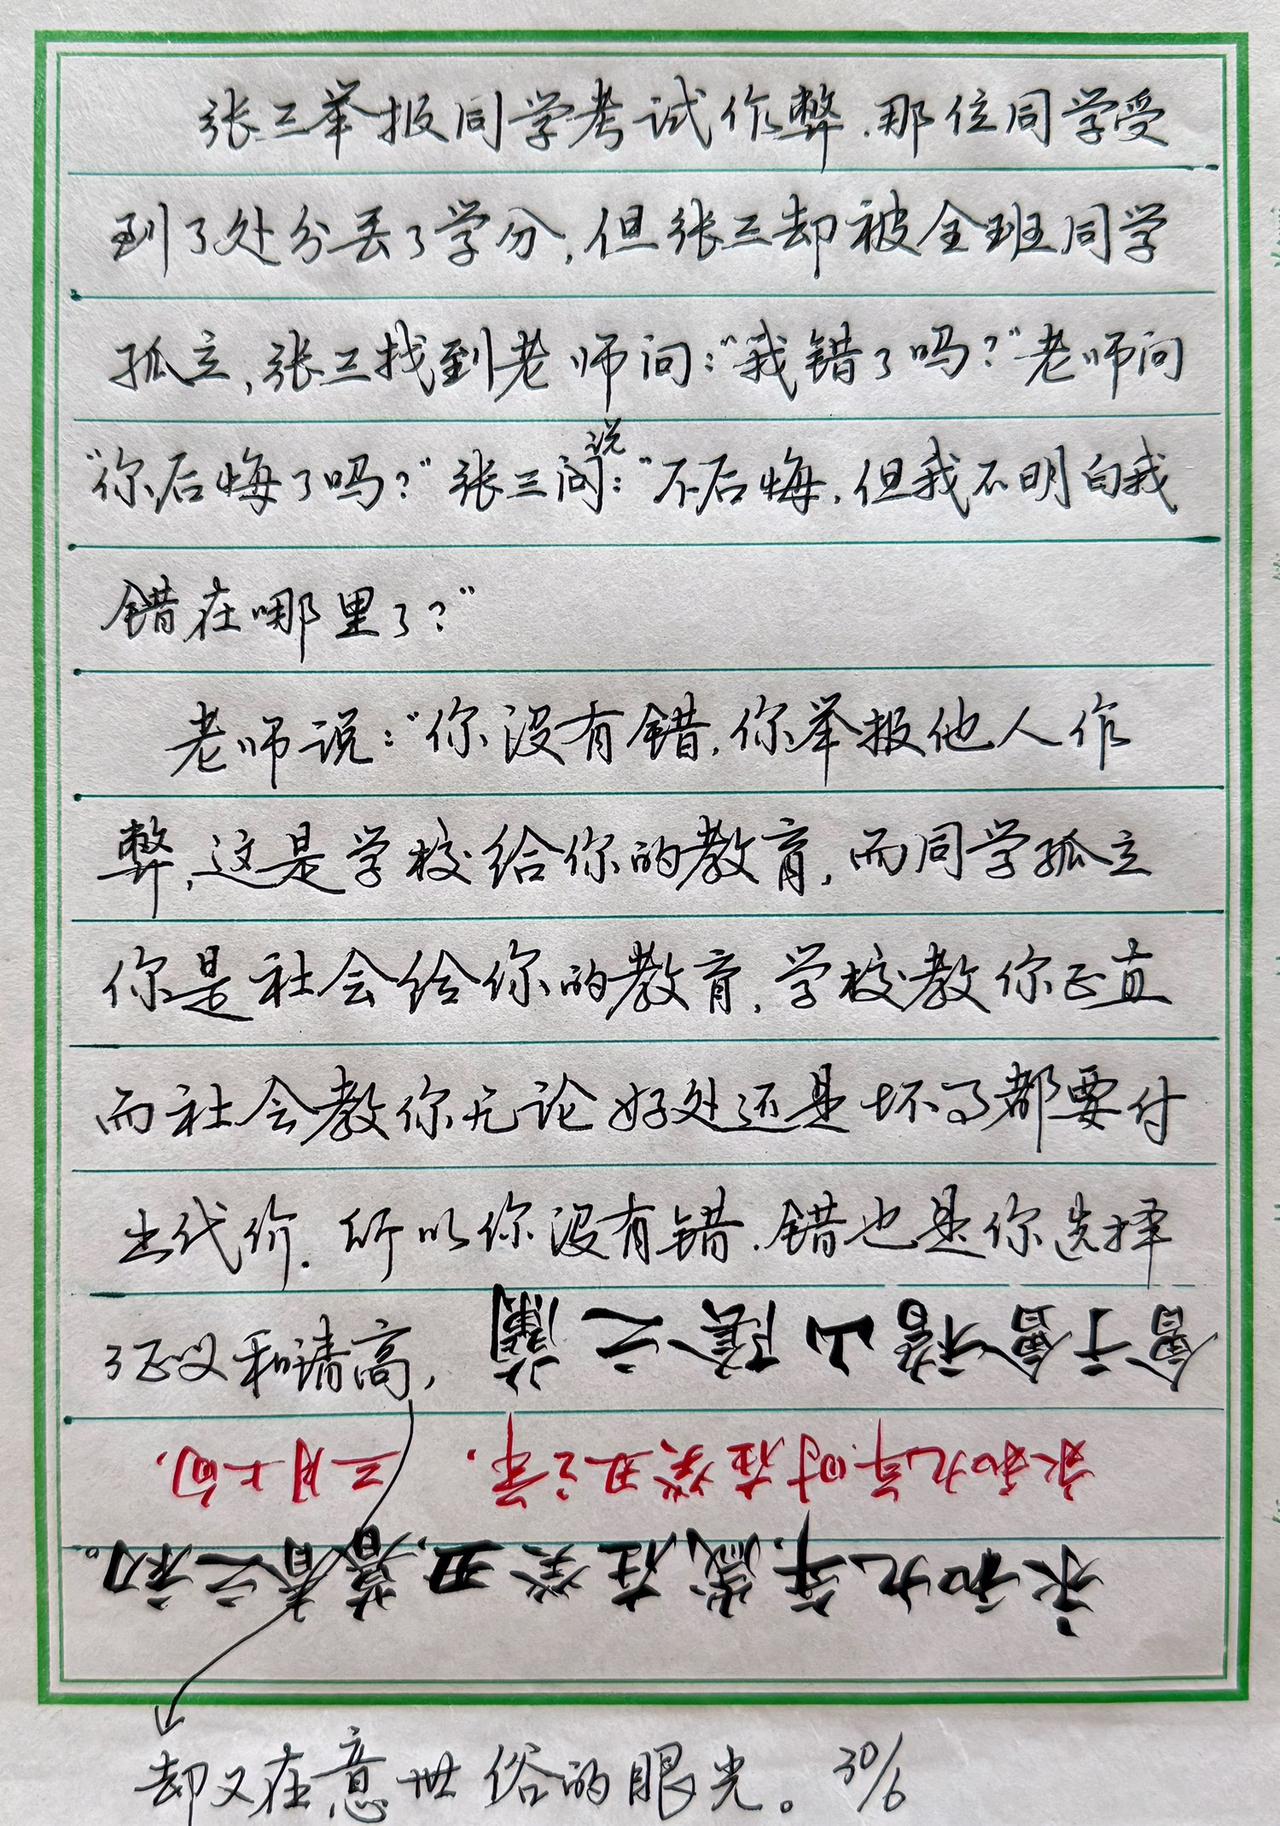 张三举报同学考试作弊.那位同学受
到了处分丢了学分,但张三却被全班同学
孤立,张三找到老师问:"我错了吗?"老师问
说
"你后悔了吗?"张三问:"不后悔,但我不明白我
错在哪里了?"
老师说:"你没有错,你举报他人作
弊,这是学校给你的教育,而同学孤立
你是社会给你的教育,学校教你正直
而社会教你无论好处还是坏了都要付
出代价.所以你没有错.错也是你选择
了正义和请高,
却又在意世俗的眼光。30/6
永和九年,歲在癸丑,暮春之初。
永和九年时在癸丑之年.三月上旬,
會于會稽山陰之蘭